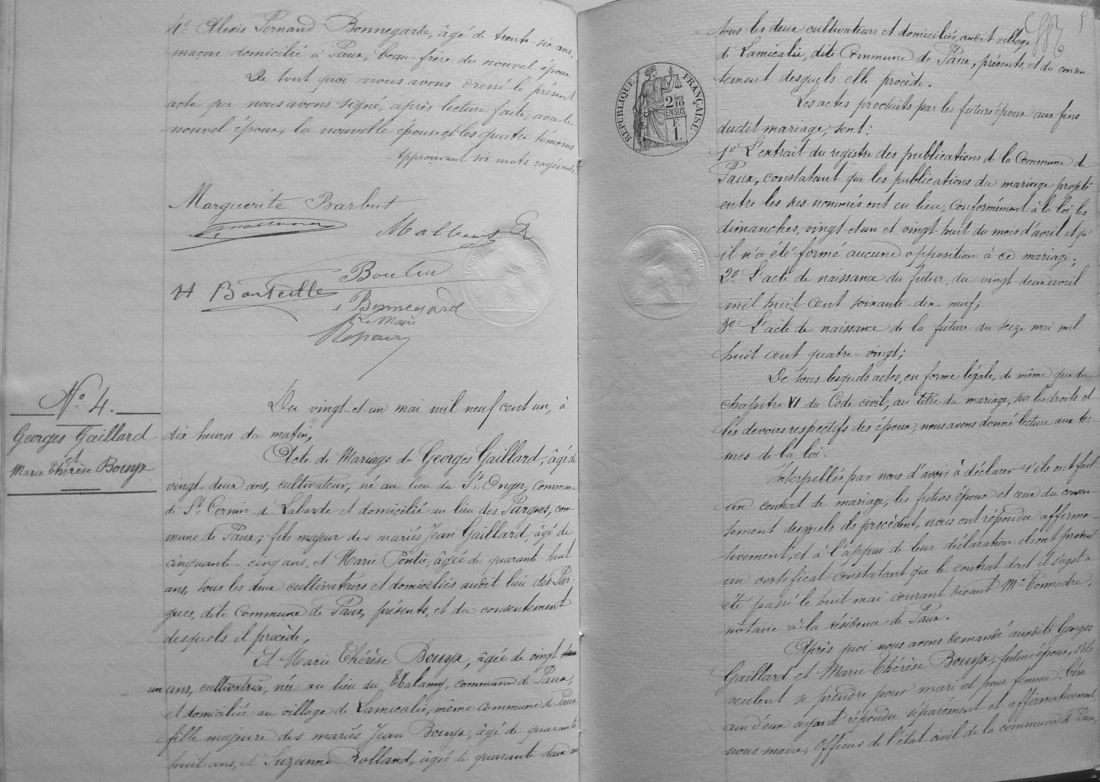 4º Alexis Fernand Bonnegarde, âgé de trente-six ans,
maçon domicilié à Paux, beau-frère du nouvel époux
De tout quoi nous avons dressé le présent
acte que nous avons signé, après lecture faite, avec le
nouvel époux, la nouvelle épouse et les quatre témoins
Approuvant six mots rayés nuls,
Marguerite Barbut
Malbec
Boutin
Bouteille
Bonnegard
Le Maire
Nº 4.
Georges Gaillard
et
Marie Thérèse Bouyx
Du vingt et un mai mil neuf cent un, à
dix heures du matin,
Acte de Mariage de Georges Gaillard, âgé de
vingt deux ans, cultivateur, né au lieu du commune
de St Cernin de Labarde et domicilié au lieu des com-
mune de Paux; fils majeur des mariés Jean Gaillard, âgé de
cinquante-cinq ans, et Marie âgée de quarante huit
ans, tous les deux cultivateurs et domiciliés audit lieu des
dite Commune de Paux, présents, et du consentement
desquels il procède,
Et Marie Thérèse Bouyx, âgée de vingt
un ans, cultivatrice, née au lieu du commune de Paux,
et domiciliée au village de Lamicalie, même commune de Paux,
fille majeure des mariés Jean Bouyx, âgé de quarante
huit ans, et Suzanne Rolland, âgée de quarante deux ans
tous les deux cultivateurs et domiciliés audit village
de Lamicalie, dite Commune de Paux, présents, et du consen-
tement desquels elle procède.
RÉPUBLIQUE FRANÇAISE
2/10 EN SUS
1 F
Les actes produits par les futurs époux aux fins
dudit mariage, sont:
1º L'extrait du registre des publications de la Commune de
Paux, constatant que les publications du mariage projeté
entre les sus nommés ont eu lieu, conformément à la loi, les
dimanches, vingt et un et vingt huit du mois d'avril et qu'
il n'a été formé aucune opposition à ce mariage;
2º L'acte de naissance du futur, du vingt-deux avril
mil huit cent soixante-dix-neuf;
3º L'acte de naissance de la future du seize mai mil
huit cent quatre-vingt;
De tous lesquels actes, en forme légale, de même que du
chapitre VI du Code civil, au titre du mariage, sur les droits et
les devoirs respectifs des époux, nous avons donné lecture aux ter-
mes de la loi.
Interpellés par nous d'avoir à déclarer s'ils ont fait
un contrat de mariage, les futurs époux et ceux du consen-
tement desquels ils procèdent, nous ont répondu affirma-
tivement, et à l'appui de leur déclaration ils ont produit
un certificat constatant que le contrat dont il s'agit a
été passé le huit mai courant devant Me
notaire à la résidence de Paux.
Après quoi nous avons demandé auxdits Georges
Gaillard et Marie Thérèse Bouyx, futurs époux, s'ils
veulent se prendre pour mari et pour femme. Cha-
cun d'eux ayant répondu séparément et affirmativement,
nous maire, officier de l'état civil de la commune de Paux,